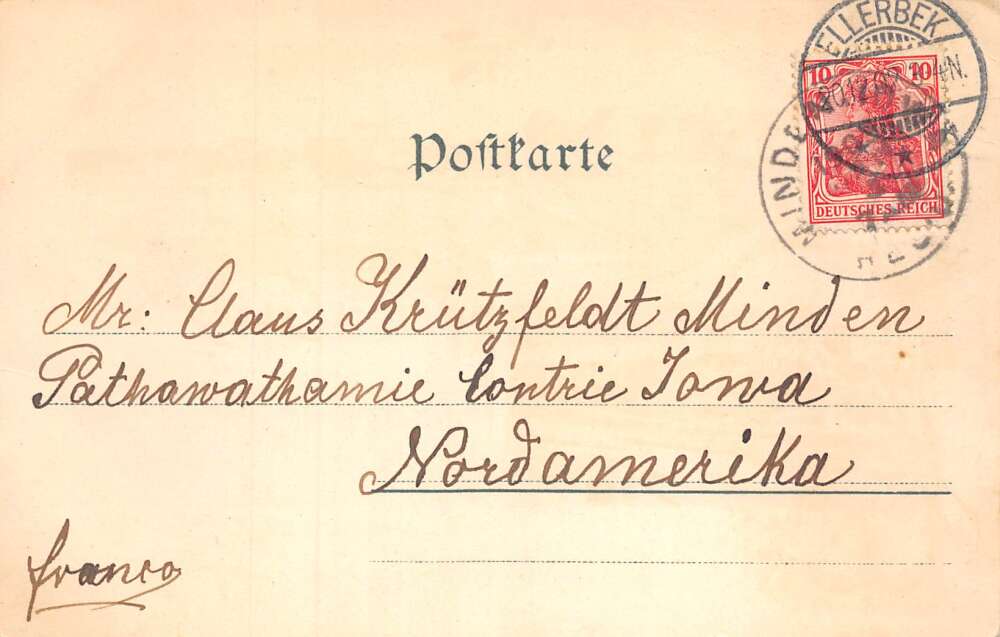 ELLERBEK
10 10
DEUTSCHES REICH
MINDE
Postkarte
Mr: Claus Krützfeldt Minden
Pathawathamie Contrie Iowa
Nordamerika
franco